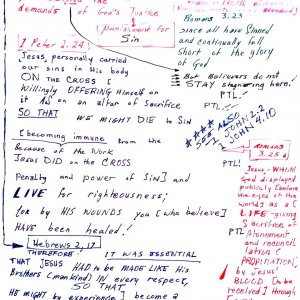 demands of God's Justice
↓
punishment for
Sin
Romans
3.23
since all have sinned
and continually fall
short of the glory
of God
But Believers do not
STAY stagnering here!
PTL!
I Peter 2.24
Jesus personally carried
our sins in His body
ON the CROSS [
Willingly OFFERING Himself on
it AS on an altar of Sacrifice
SO THAT
WE MIGHT DIE to Sin
****
SEE ALSO
I JOHN 2.2
JOHN 4.10
PTL!
[becoming immune from the
Because of the Work
Jesus DID on the CROSS
Penalty and power of Sin] and
LIVE for righteousness;
for by HIS WOUNDS you [who believe]
HAVE been healed!
ROMANS
3.25a
PTL!
Jesus - WHOM
GOD displayed
publicly [before
the eyes of the
world] as a [
LIFE-giving
Sacrifice of
Atonement
and reconcil
iation (
PROPITIATION)
by Jesus'
BLOOD [to be
received] through
Hebrews 2.17
THEREFORE! IT WAS ESSENTIAL
THAT JESUS HAD to be MADE LIKE His
Brothers (mankind) IN every respect,
SO THAT
HE MIGHT by experience] become a